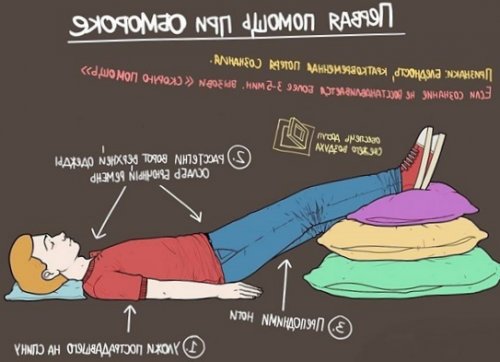 Первая помощь при обмороке
Признаки: бледность, кратковременная потеря сознания.
Если сознание не восстанавливается более 3-5 мин. вызови «скорую помощь»
обеспечь доступ
свежего воздуха
2. расстегни ворот верхней одежды
ослабь брючный ремень
3. Приподними ноги
1. Уложи пострадавшего на спину